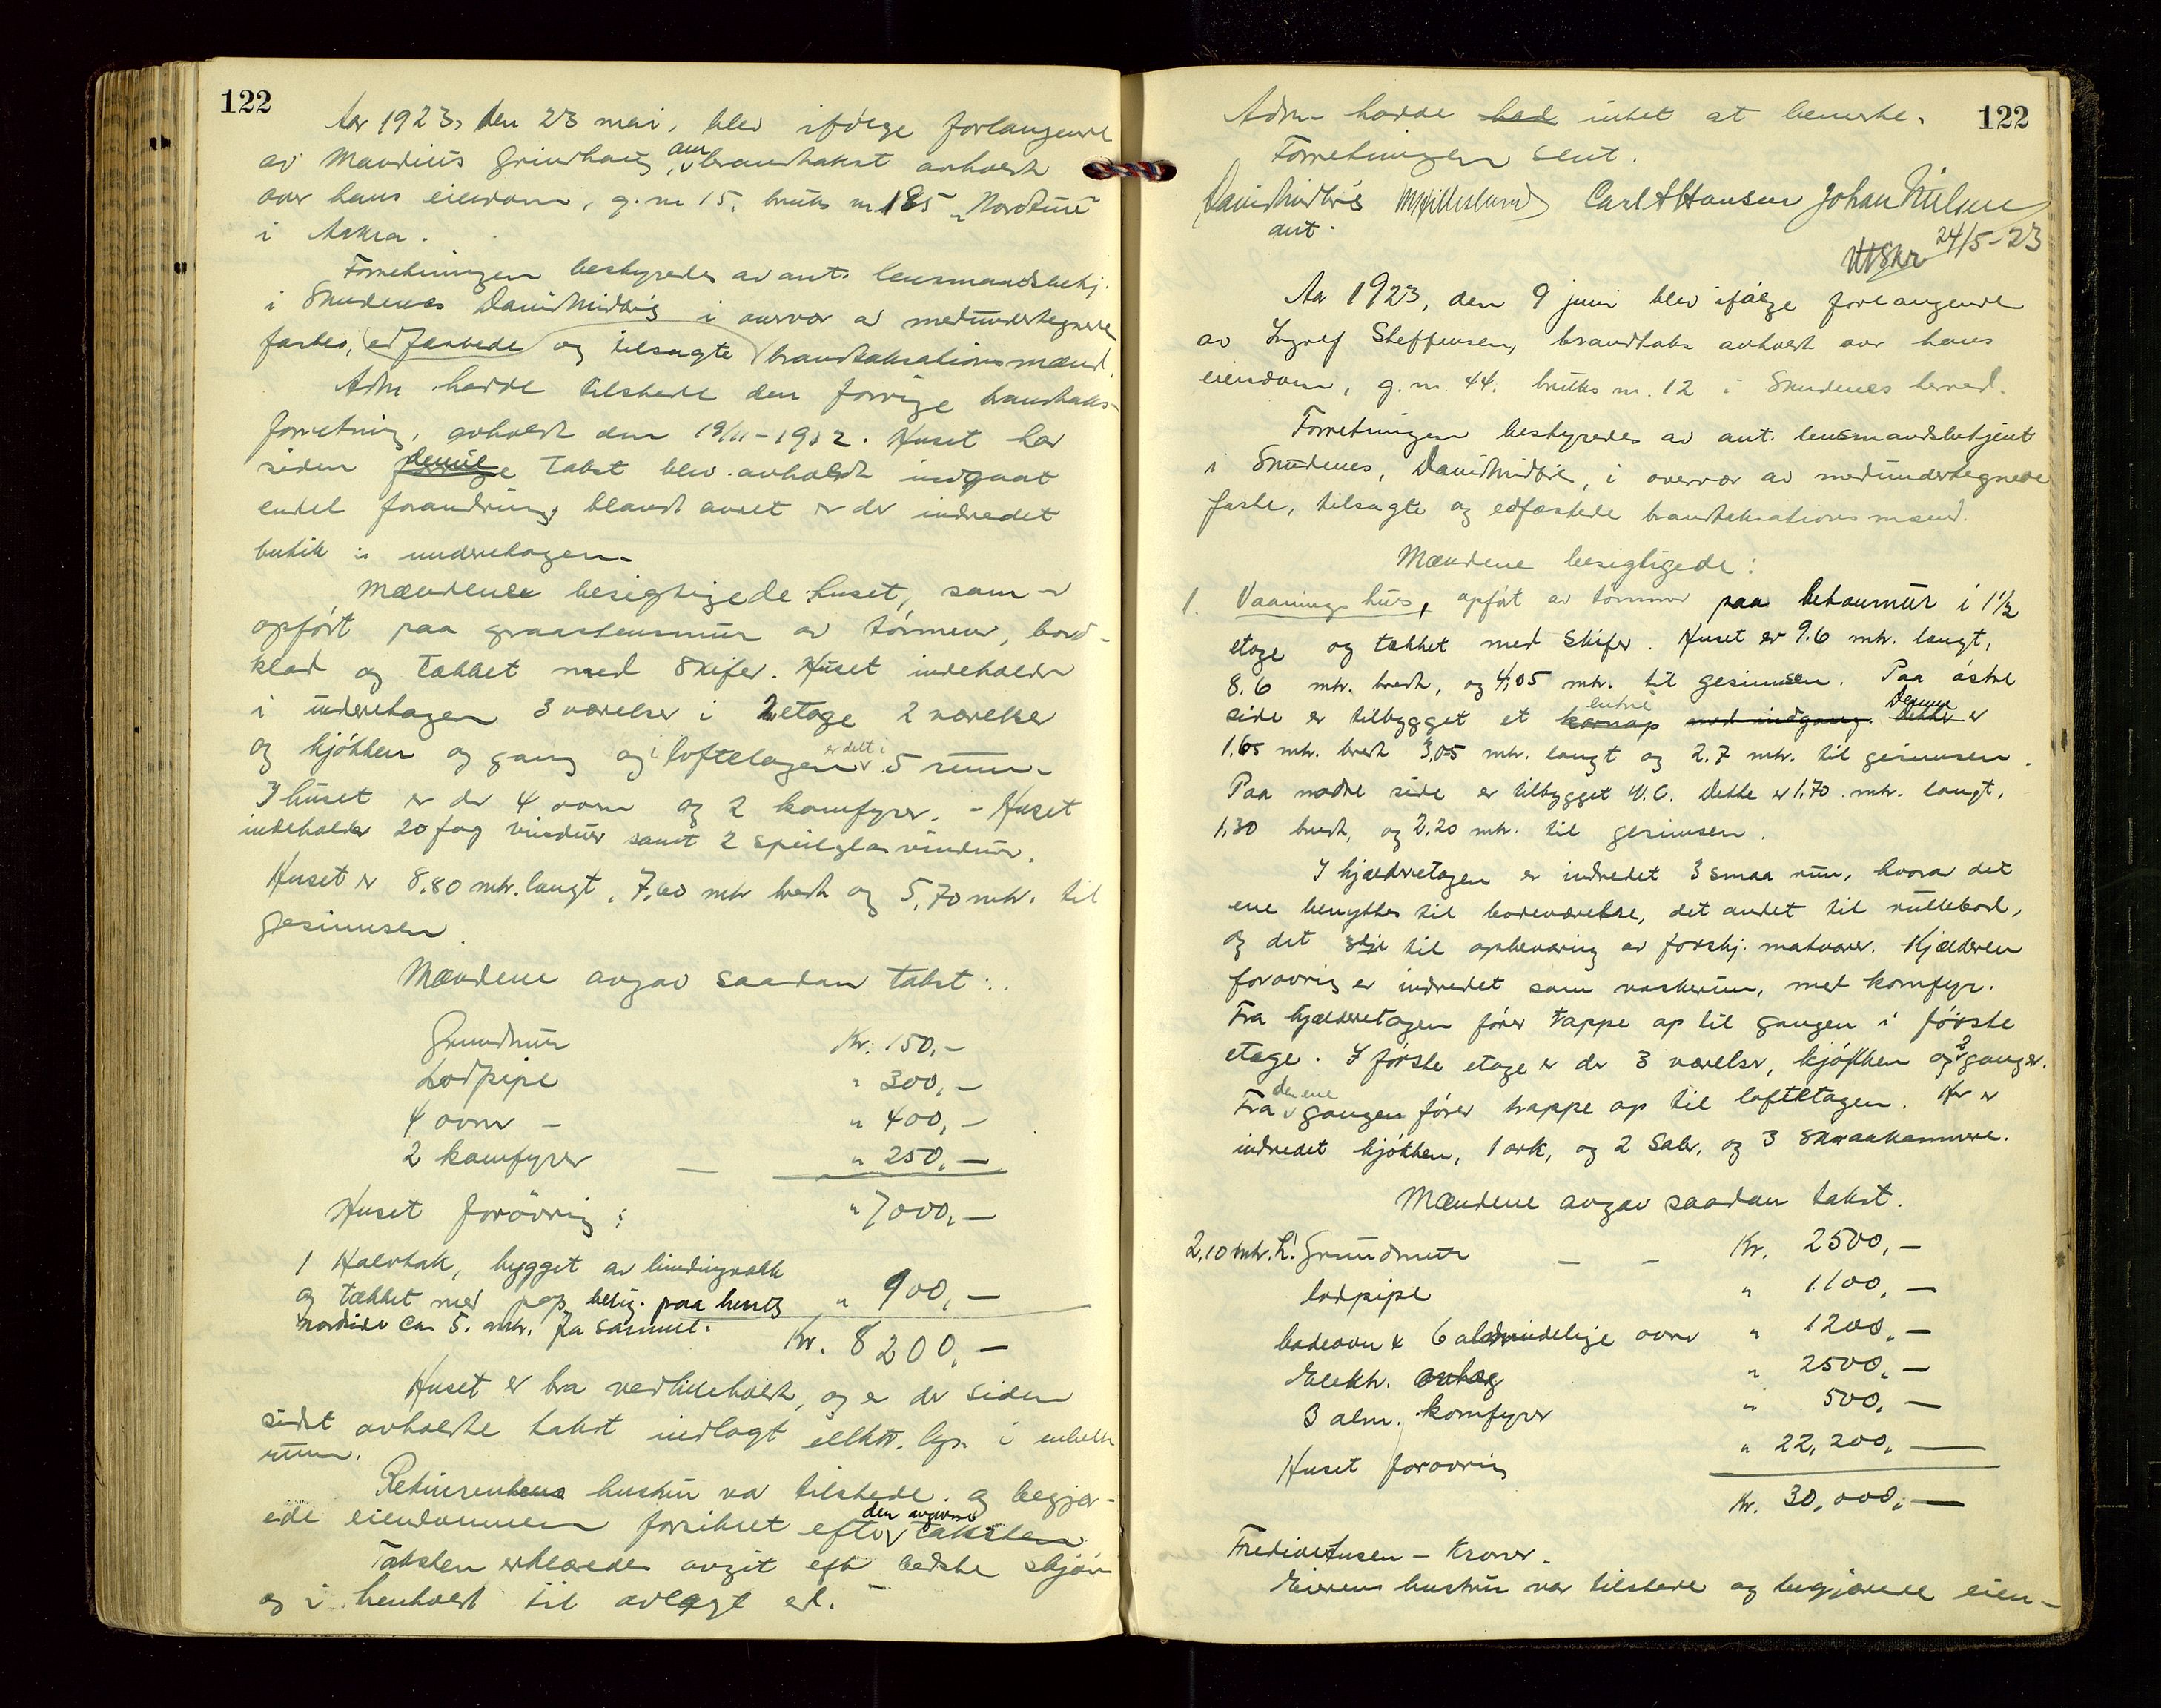 122
Aar 1923, den 23 mai, blev ifölge forlangende
av Mandius Grindhaug, om brandtakst avholdt
over hans eiendom, g.nr 15, bruks nr 185 "Nordtun"
i Aakra.
Forretningen bestyredes av ant. lensmandsbetj.
i Skudenes David Midbö i overvær av medundertegnede
fastes, edfæstede og tilsagte brandtaksationsmænd.
Adm. hadde tilstede den forrige brandtakst-
forretning, avholdt den 19/11-1912. Huset har
siden denne takst blev avholdt undgaat
endel forandring, blandt annet er der indredet
butik i underetagen.
Mændene besigtigede huset, som er
opfört paa graastensmur av tömmer, bord-
klæd og tækket med skifer. Huset indeholder
i underetagen 3 værelser i 2 etage 2 værelser
og kjökken og gang og i loftetagen er delt i 5 rum.
I huset er der 4 ovne og 2 komfyrer. - Huset
indeholder 20 fag vinduer samt 2 speilglas vinduer.
Huset er 8.80 mtr. langt, 7,60 mtr bredt og 5,70 mtr. til
gesimsen.
Mændene avgav saadan takst:
Grundmur Kr. 150,-
Lodpipe " 300,-
4 ovne - " 400,-
2 komfyrer - " 250,-
Huset forövrig: " 7000,-
1 Halvtak, bygget av bindingsverk
og tækket med pap, belig. paa husets " 900,-
nordside ca 5. mtr. fra samme. Kr. 8200,-
Huset er bra vedlikeholdt, og er der siden
sidst avholdte takst indlagt elektr. lys i enkelte
rum.
Rekvirentens hustru var tilstede og begjær-
ede eiendommen forsikret efter den avgivne taksten
Taksten erklæredes avgit efter bedste skjön
og i henhold til avlagt ed.
122
Adm. hadde intet at bemerke.
Forretningen slut.
David Midbö Carl A Hansen Johan Nilsen
ant.
Utskr 24/5-23
Aar 1923, den 9 juni blev ifölge forlangende
av Ingolf Steffensen, brandtakst avholdt over hans
eiendom, g.nr. 44. bruks nr. 12 i Skudenes herred.
Forretningen bestyredes av ant. lensmandsbetjent
i Skudenes, David Midbö, i overvær av medundertegnede
faste, tilsagte og edfæstede brandtaksationsmænd.
Mændene besigtigede:
1. Vaaningshus, opfört av tömmer paa betonmur i 1 1/2
etage og tækket med skifer. Huset er 9.6 mtr. langt,
8.6 mtr. bredt, og 4,05 mtr. til gesimsen. Paa östre
side er tilbygget et karnap entré med indgang. Dette Denne er
1.65 mtr. bredt 3,05 mtr. langt og 2.7 mtr. til gesimsen.
Paa nordre side er tilbygget W.C. Dette er 1,70 mtr. langt,
1,30 bredt, og 2,20 mtr. til gesimsen.
I kjælderetagen er indredet 3 smaa rum, hvorav det
ene benyttes til badeværelse, det andet til rullebod,
og det 3dje til opbevaring av forskj. matvarer. Kjælderen
forövrig er indredet som vaskerum, med komfyr.
Fra kjælderetagen förer trappe op til gangen i förste
etage. I förste etage er der 3 værelser, kjökken og 2 ganger.
Fra den ene gangen förer trappe op til loftetagen. Her er
indredet kjökken, 1 ark, og 2 sale, og 3 skraakammere.
Mændene avgav saadan takst.
2,10 mtr. h. Grundmur - - Kr. 2500,-
lodpipe " 1100,-
badeovn & 6 almindelige ovne " 1200,-
Elektr. anlæg " 2500,-
3 alm. komfyrer " 500,-
Huset forövrig " 22,200,-
Kr. 30,000,-
Tredivetusen - Kroner.
Eierens hustru var tilstede og begjærede eien-